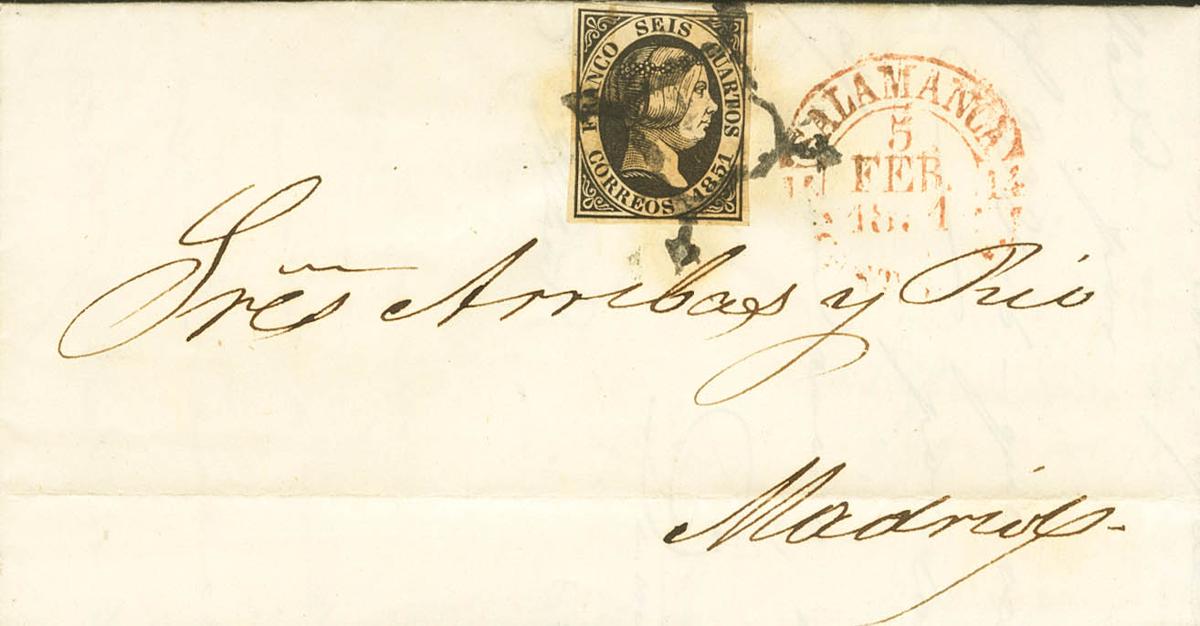 FRANCO SEIS CUARTOS
CORREOS 1851
SALAMANCA
5
FEB.
Sres Arribas y
Madrid